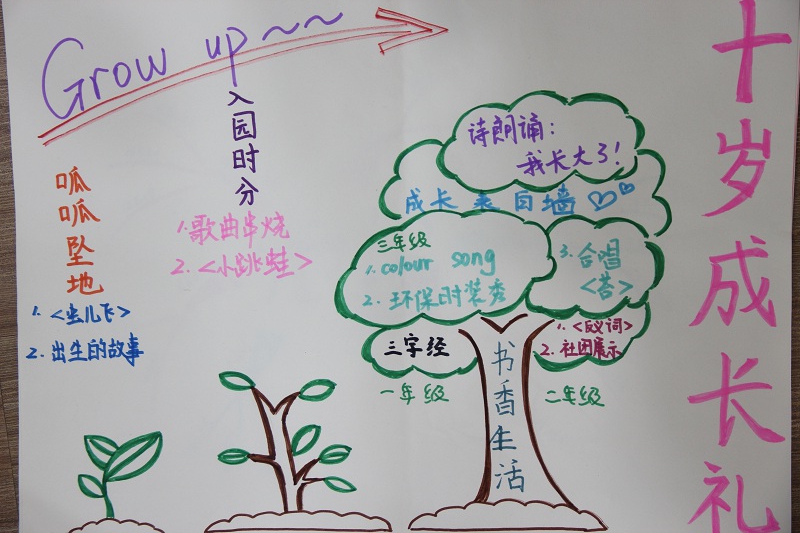 Grow up~~
十岁成长礼
呱呱坠地
1. <虫儿飞>
2. 出生的故事
入园时分
1. 歌曲串烧
2. <小跳蛙>
诗朗诵:
我长大了!
成长表白墙
三年级
1. colour song
2. 环保时装秀
3. 合唱
<苔>
三字经
一年级
1. <反义词>
2. 社团展示
二年级
书香生活